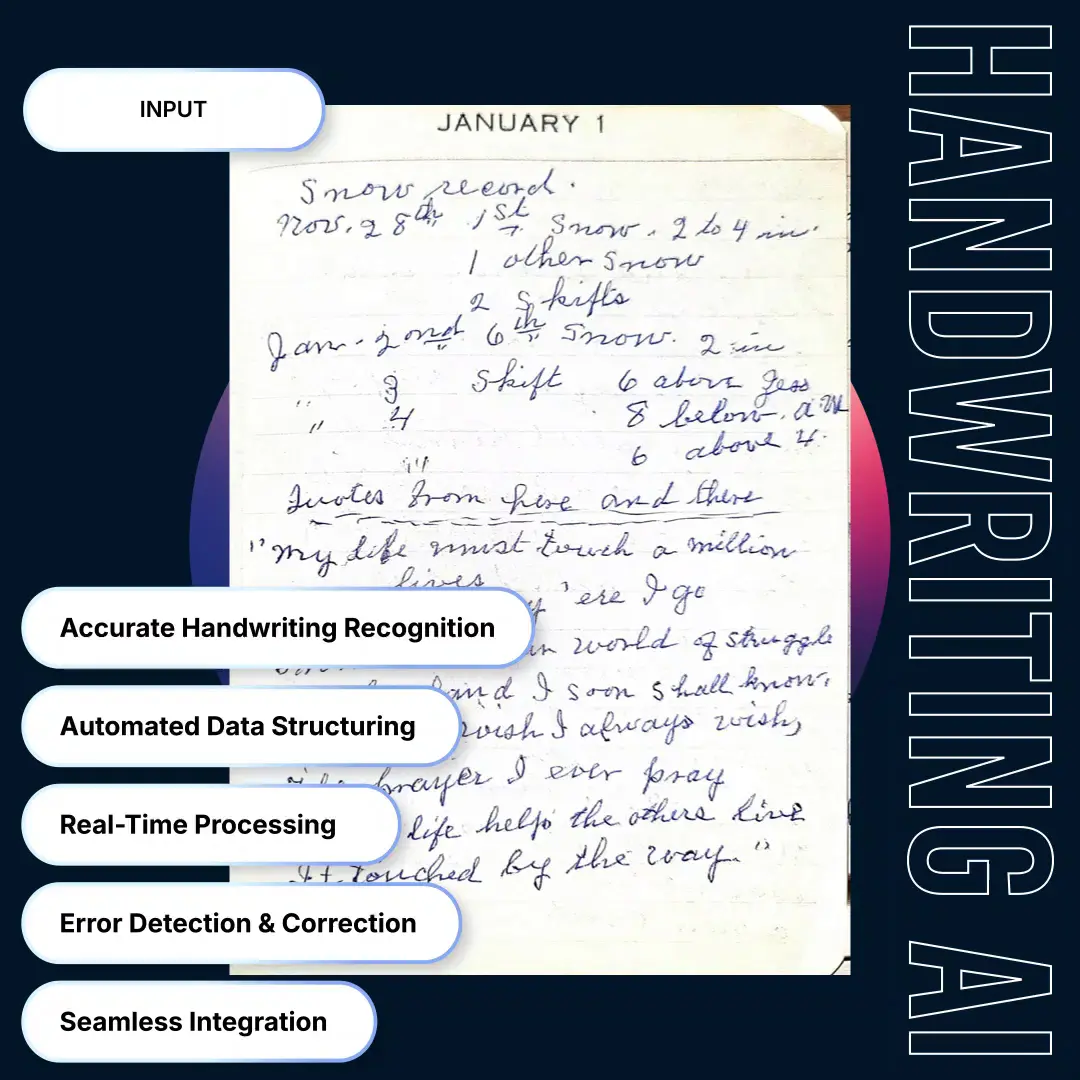 INPUT
JANUARY 1
Snow record.
Nov. 28th 1st Snow. 2 to 4 in.
1 other snow
2 Skifts
Jan. 2nd 6th Snow. 2 in
" 3 Skift 6 above
" 4 8 below. a.m
6 above 4.
Quotes from here and there
"my life must touch a million
lives
'ere I go
world of struggle
and I soon shall know,
wish I always wish,
prayer I ever pray
life helps the others live
It touched by the way."
Accurate Handwriting Recognition
Automated Data Structuring
Real-Time Processing
Error Detection & Correction
Seamless Integration
HANDWRITING AI